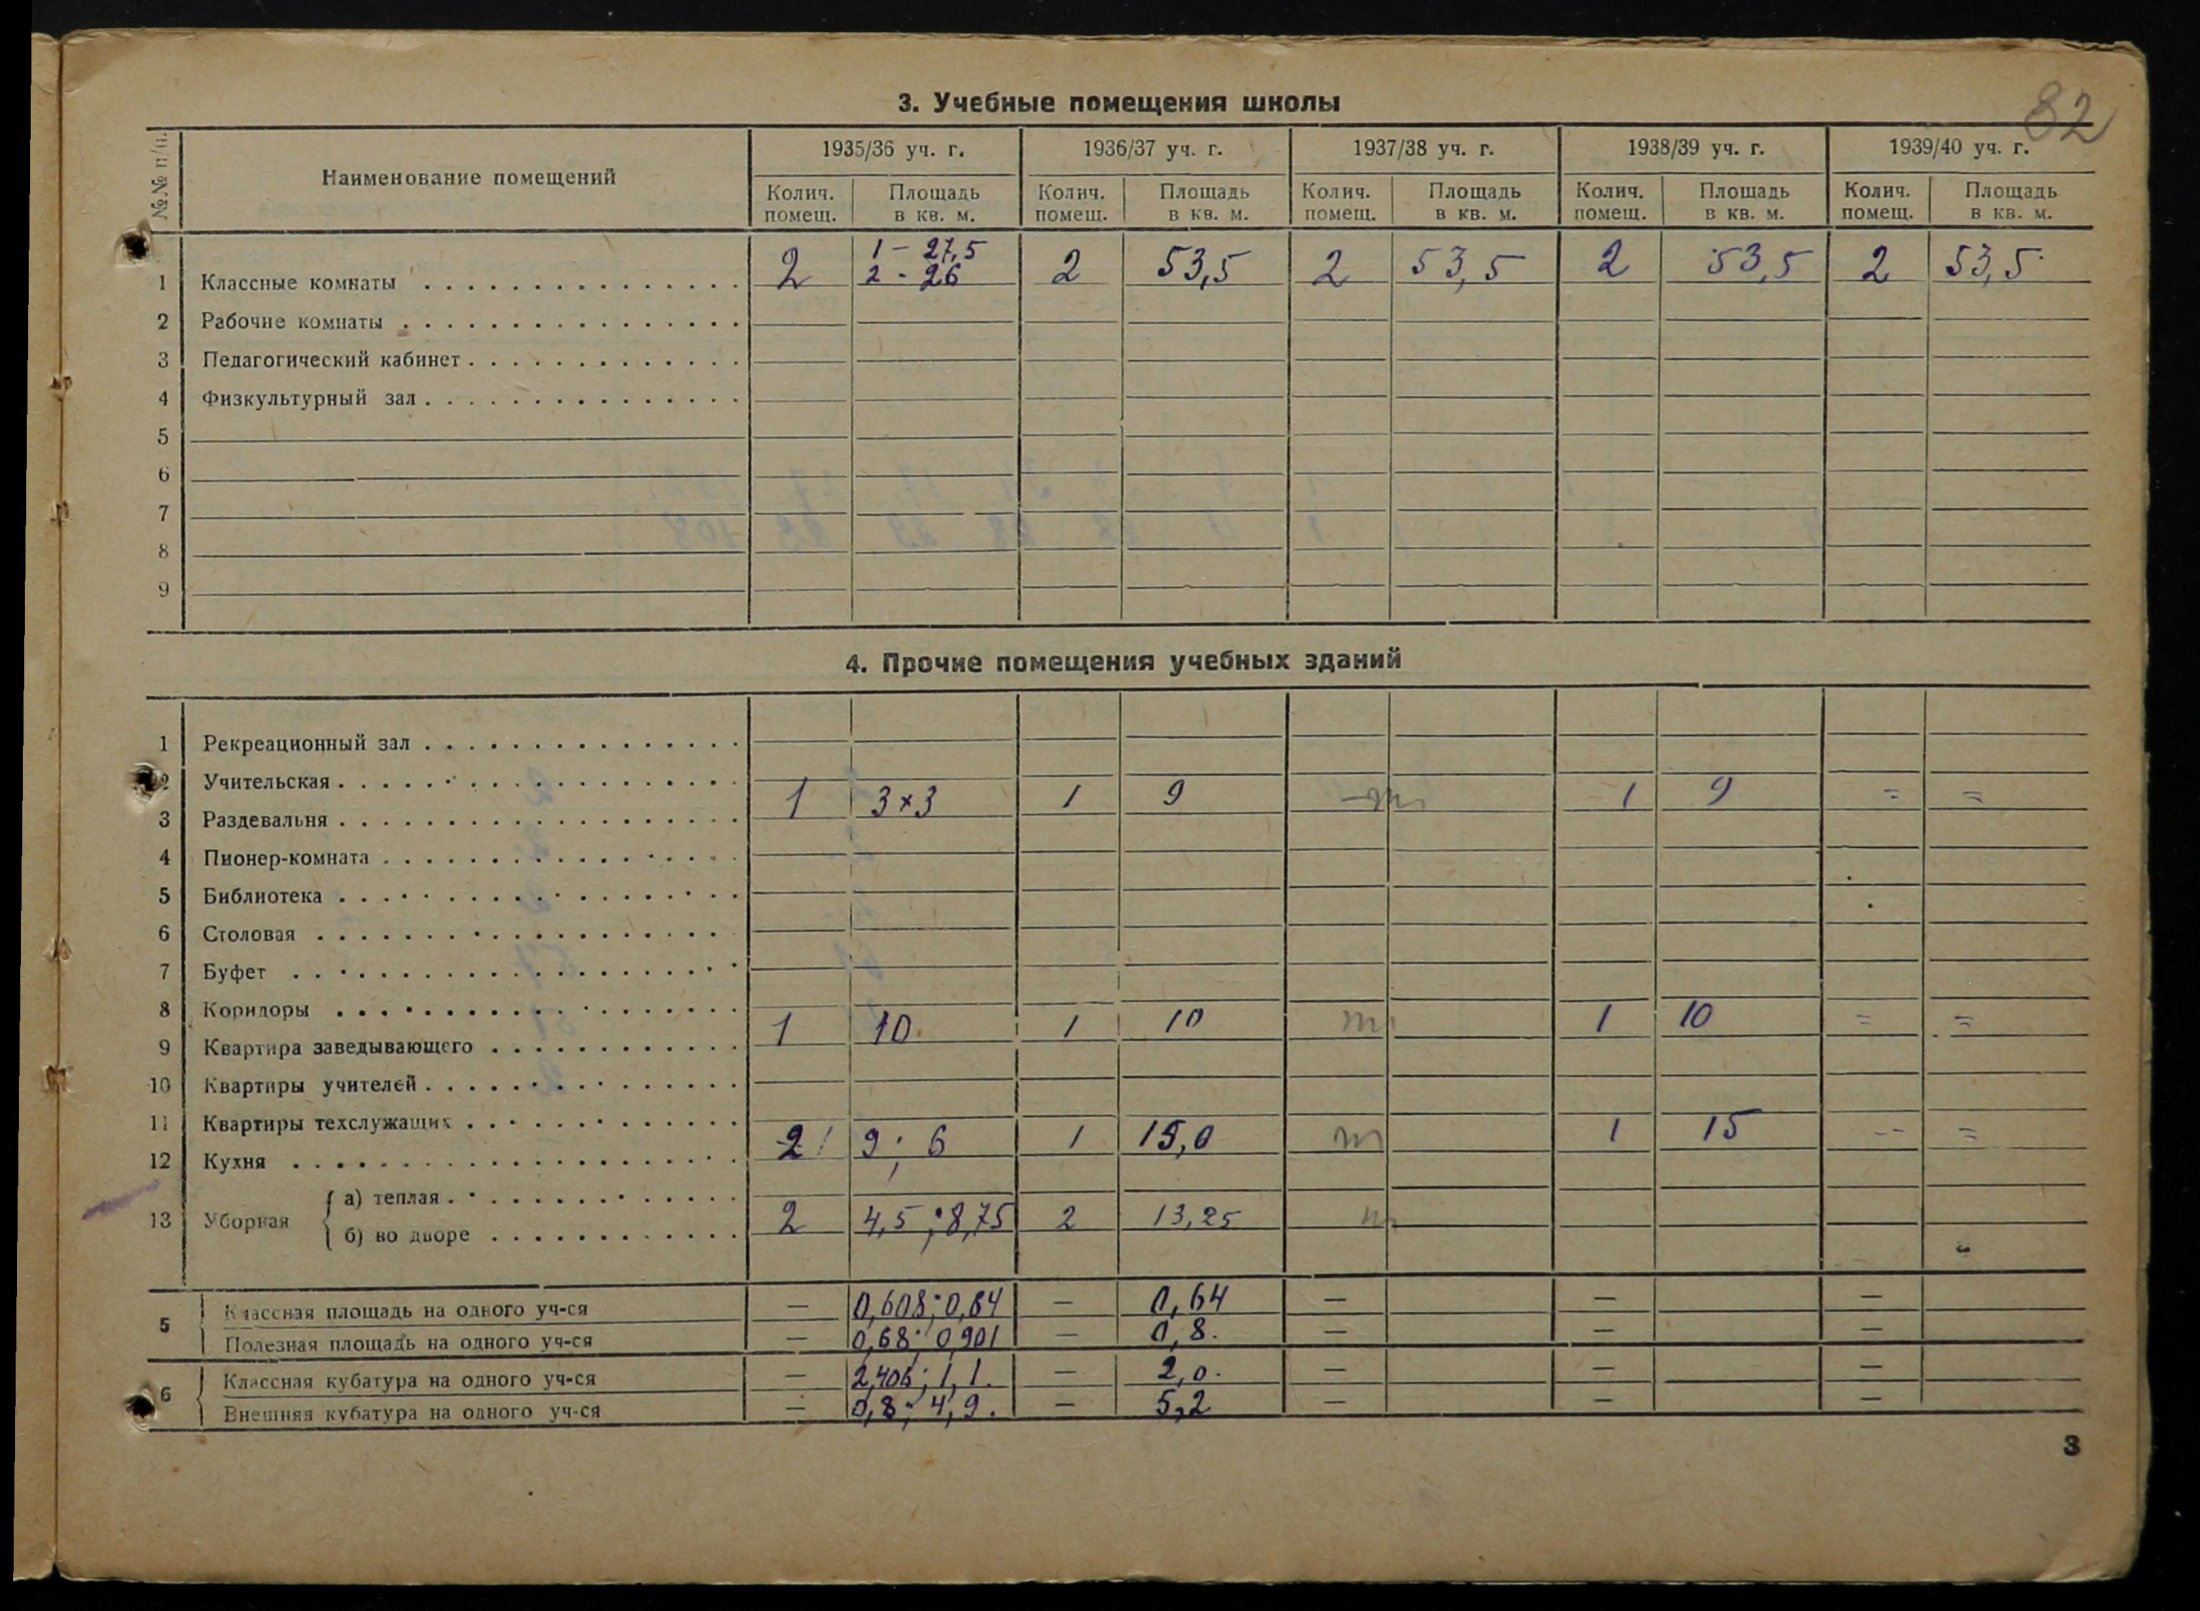 82
3. Учебные помещения школы
№№ п/п. Наименование помещений 1935/36 уч. г. 1936/37 уч. г. 1937/38 уч. г. 1938/39 уч. г. 1939/40 уч. г.
Колич. помещ. Площадь в кв. м. Колич. помещ. Площадь в кв. м. Колич. помещ. Площадь в кв. м. Колич. помещ. Площадь в кв. м. Колич. помещ. Площадь в кв. м.
1 Классные комнаты 2 1 – 27,5 2 - 26 2 53,5 2 53,5 2 53,5 2 53,5
2 Рабочие комнаты
3 Педагогический кабинет
4 Физкультурный зал
5
6
7
8
9
4. Прочие помещения учебных зданий
1 Рекреационный зал
2 Учительская
3 Раздевальня 1 3×3 1 9 1 9 = =
4 Пионер-комната
5 Библиотека
6 Столовая
7 Буфет
8 Коридоры
9 Квартира заведывающего 1 10 1 10 1 10 = =
10 Квартиры учителей
11 Квартиры техслужащих
12 Кухня 2 9; 6 1 15,0 1 15 -- =
13 Уборная { а) теплая
б) во дворе 2 4,5; 8,75 2 13,25
5 Классная площадь на одного уч-ся — 0,608; 0,64 — 0,64 — — —
Полезная площадь на одного уч-ся — 0,68; 0,901 — 0,8. — — —
6 Классная кубатура на одного уч-ся — 2,406; 1,1. — 2,0. — — —
Внешняя кубатура на одного уч-ся — 0,8; 4,9. — 5,2 — — —
3